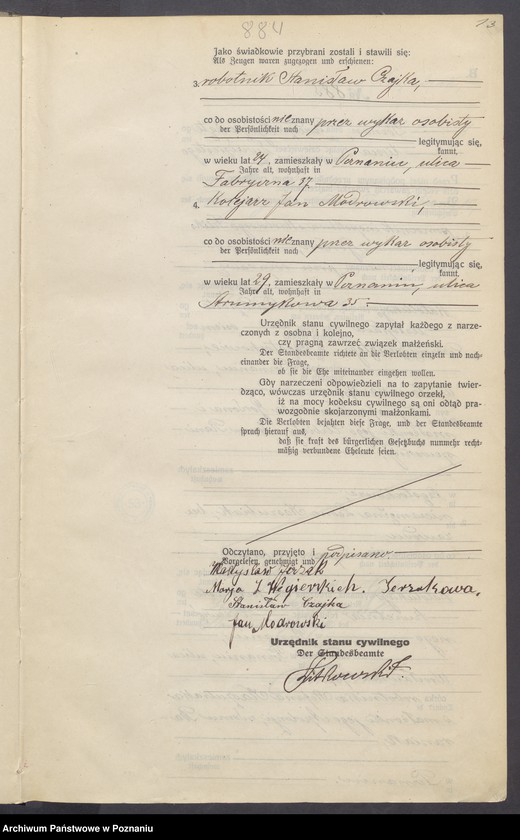 884
13
Jako świadkowie przybrani zostali i stawili się:
Als Zeugen waren zugezogen und erschienen:
3. robotnik Stanisław Czajka,
co do osobistości nieznany przez wykaz osobisty
der Persönlichkeit nach
legitymując się,
kannt,
w wieku lat 24, zamieszkały w Poznaniu, ulica
Jahre alt, wohnhaft in
Fabryczna 37
4. Kolejarz Jan Modrowski,
co do osobistości nieznany przez wykaz osobisty
der Persönlichkeit nach
legitymując się,
kannt,
w wieku lat 29, zamieszkały w Poznaniu, ulica
Jahre alt, wohnhaft in
Strumykowa 25.
Urzędnik stanu cywilnego zapytał każdego z narze-
czonych z osobna i kolejno,
czy pragną zawrzeć związek małżeński.
Der Standesbeamte richtete an die Verlobten einzeln und nach-
einander die Frage,
ob sie die Ehe miteinander eingehen wollen.
Gdy narzeczeni odpowiedzieli na to zapytanie twier-
dząco, wówczas urzędnik stanu cywilnego orzekł,
iż na mocy kodeksu cywilnego są oni odtąd pra-
wozgodnie skojarzonymi małżonkami.
Die Verlobten bejahten diese Frage, und der Standesbeamte
sprach hierauf aus,
daß sie kraft des bürgerlichen Gesetzbuchs nunmehr recht-
mäßig verbundene Eheleute seien.
Odczytano, przyjęto i podpisano.
Vorgelesen, genehmigt und
Władysław Jerzak
Marja z Węgierskich Jerzakowa.
Stanisław Czajka
Jan Modrowski
Urzędnik stanu cywilnego
Der Standesbeamte
Archiwum Państwowe w Poznaniu